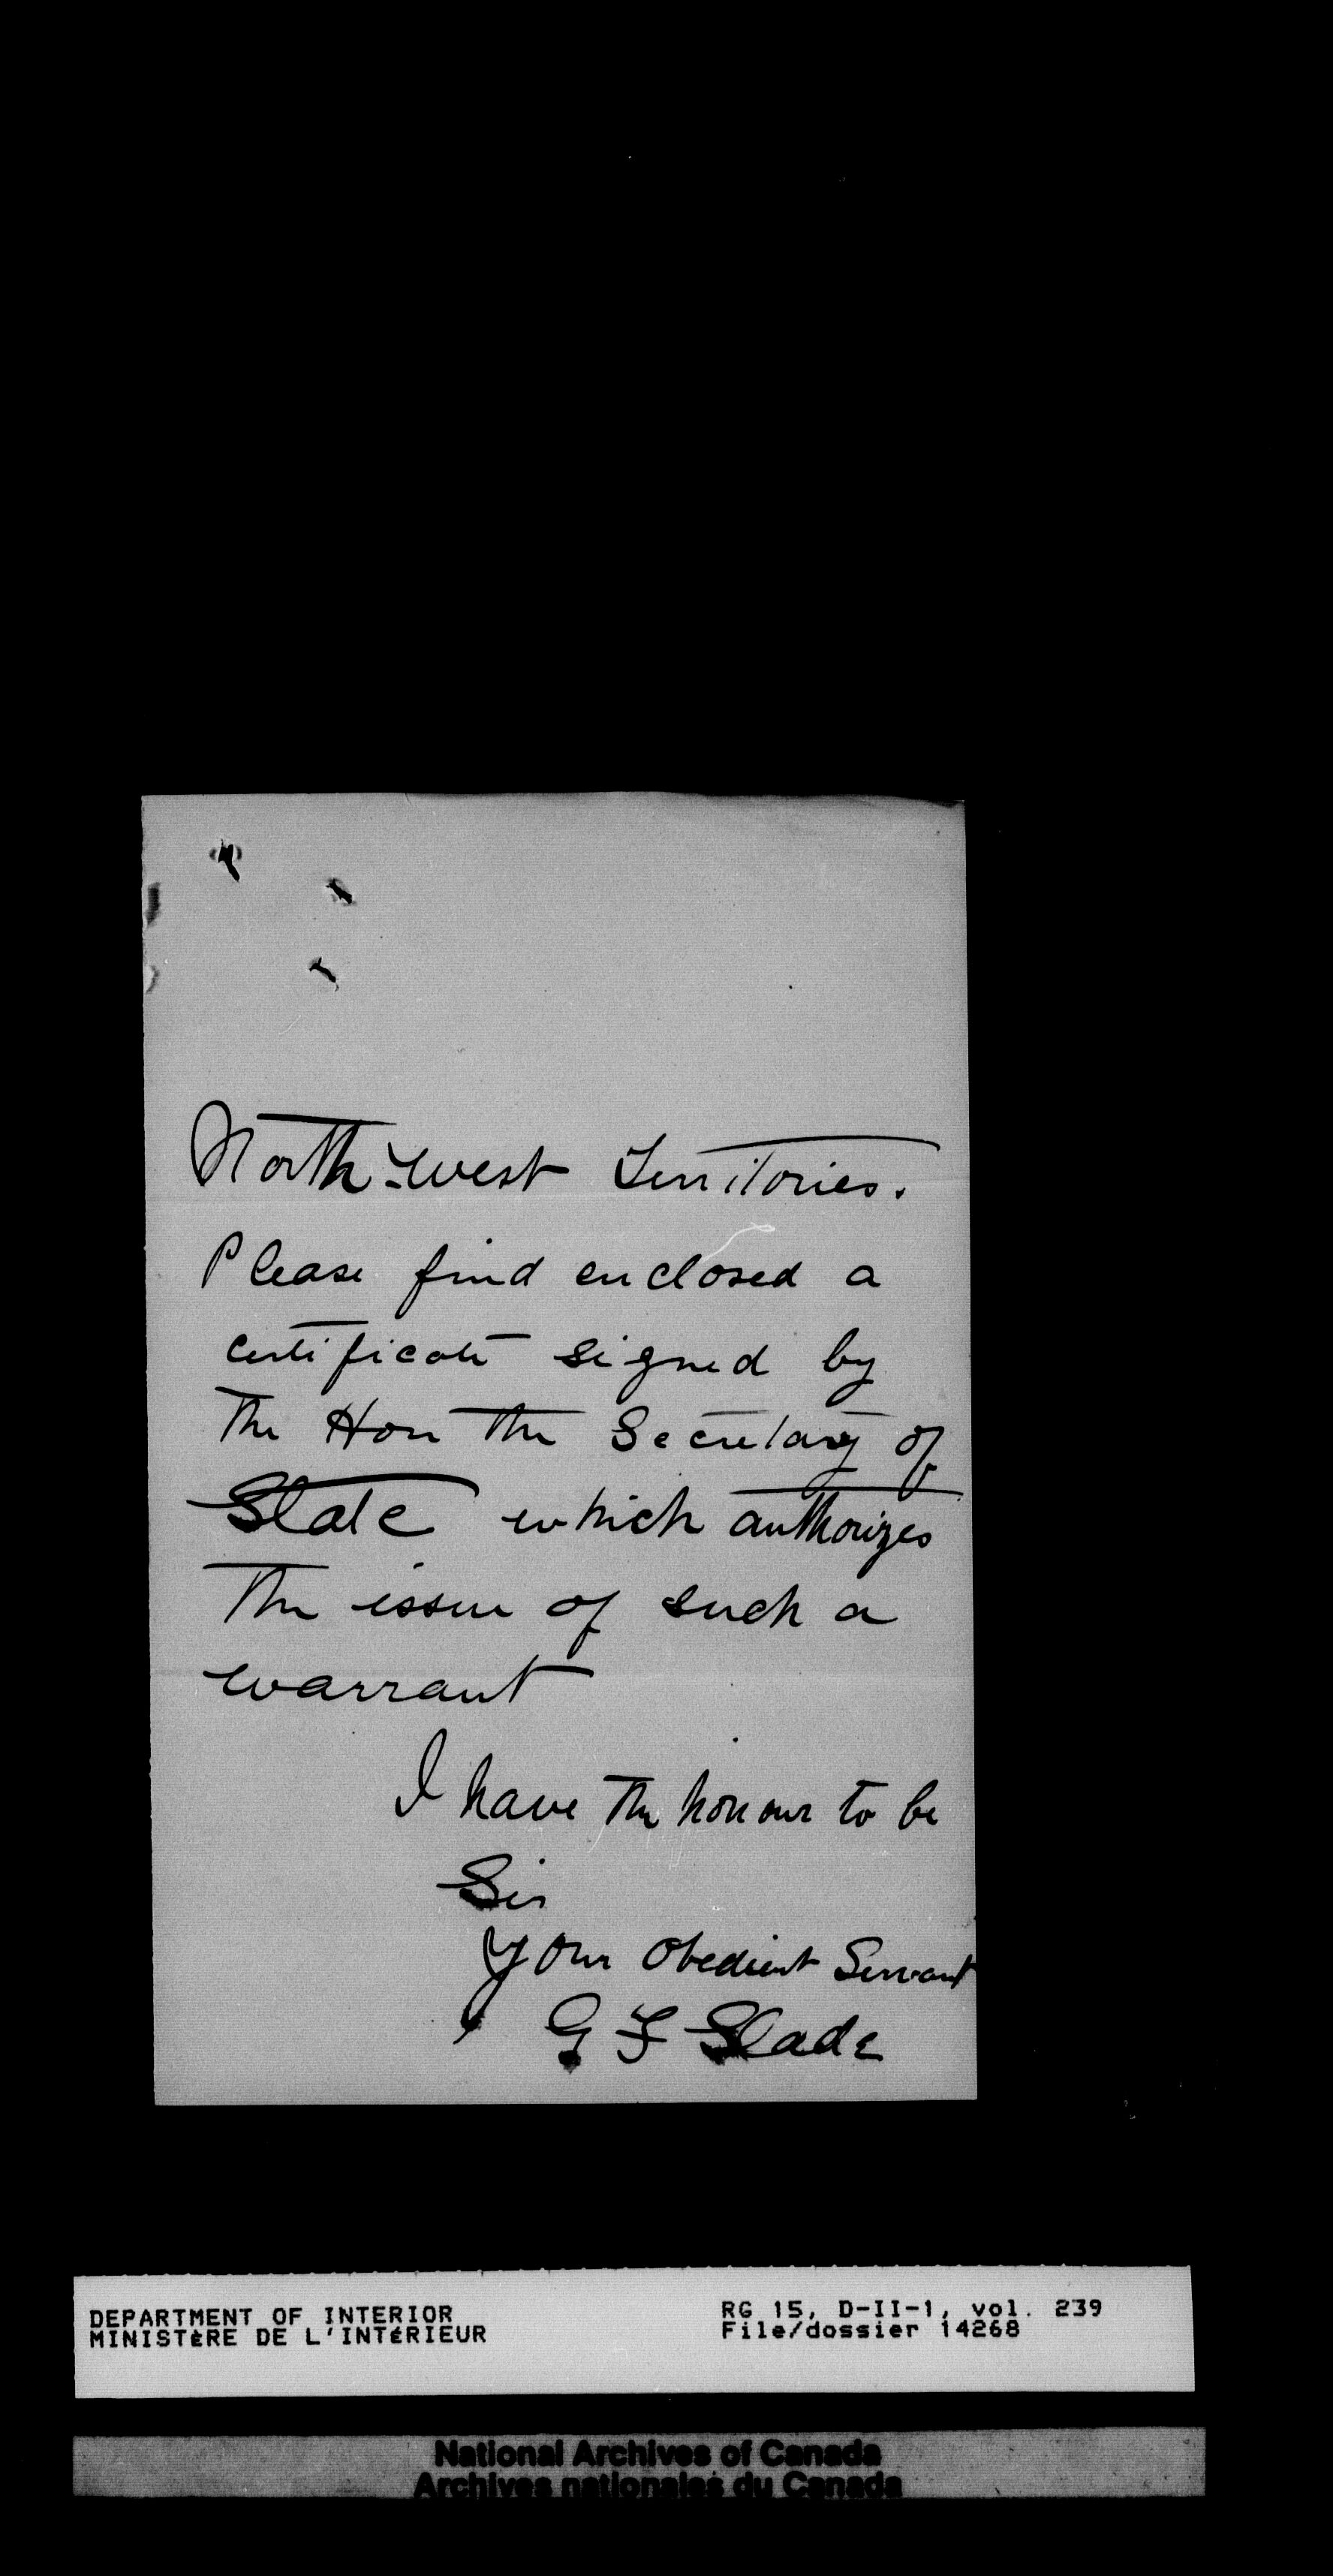 North-West Territories.
Please find enclosed a
certificate signed by
the Hon the Secretary of
State which authorizes
the issue of such a
warrant
I have the honour to be
Sir
Your Obedient Servant
G F Slade
DEPARTMENT OF INTERIOR
MINISTÈRE DE L'INTÉRIEUR
RG 15, D-II-1, vol. 239
File/dossier 14268
National Archives of Canada
Archives nationales du Canada